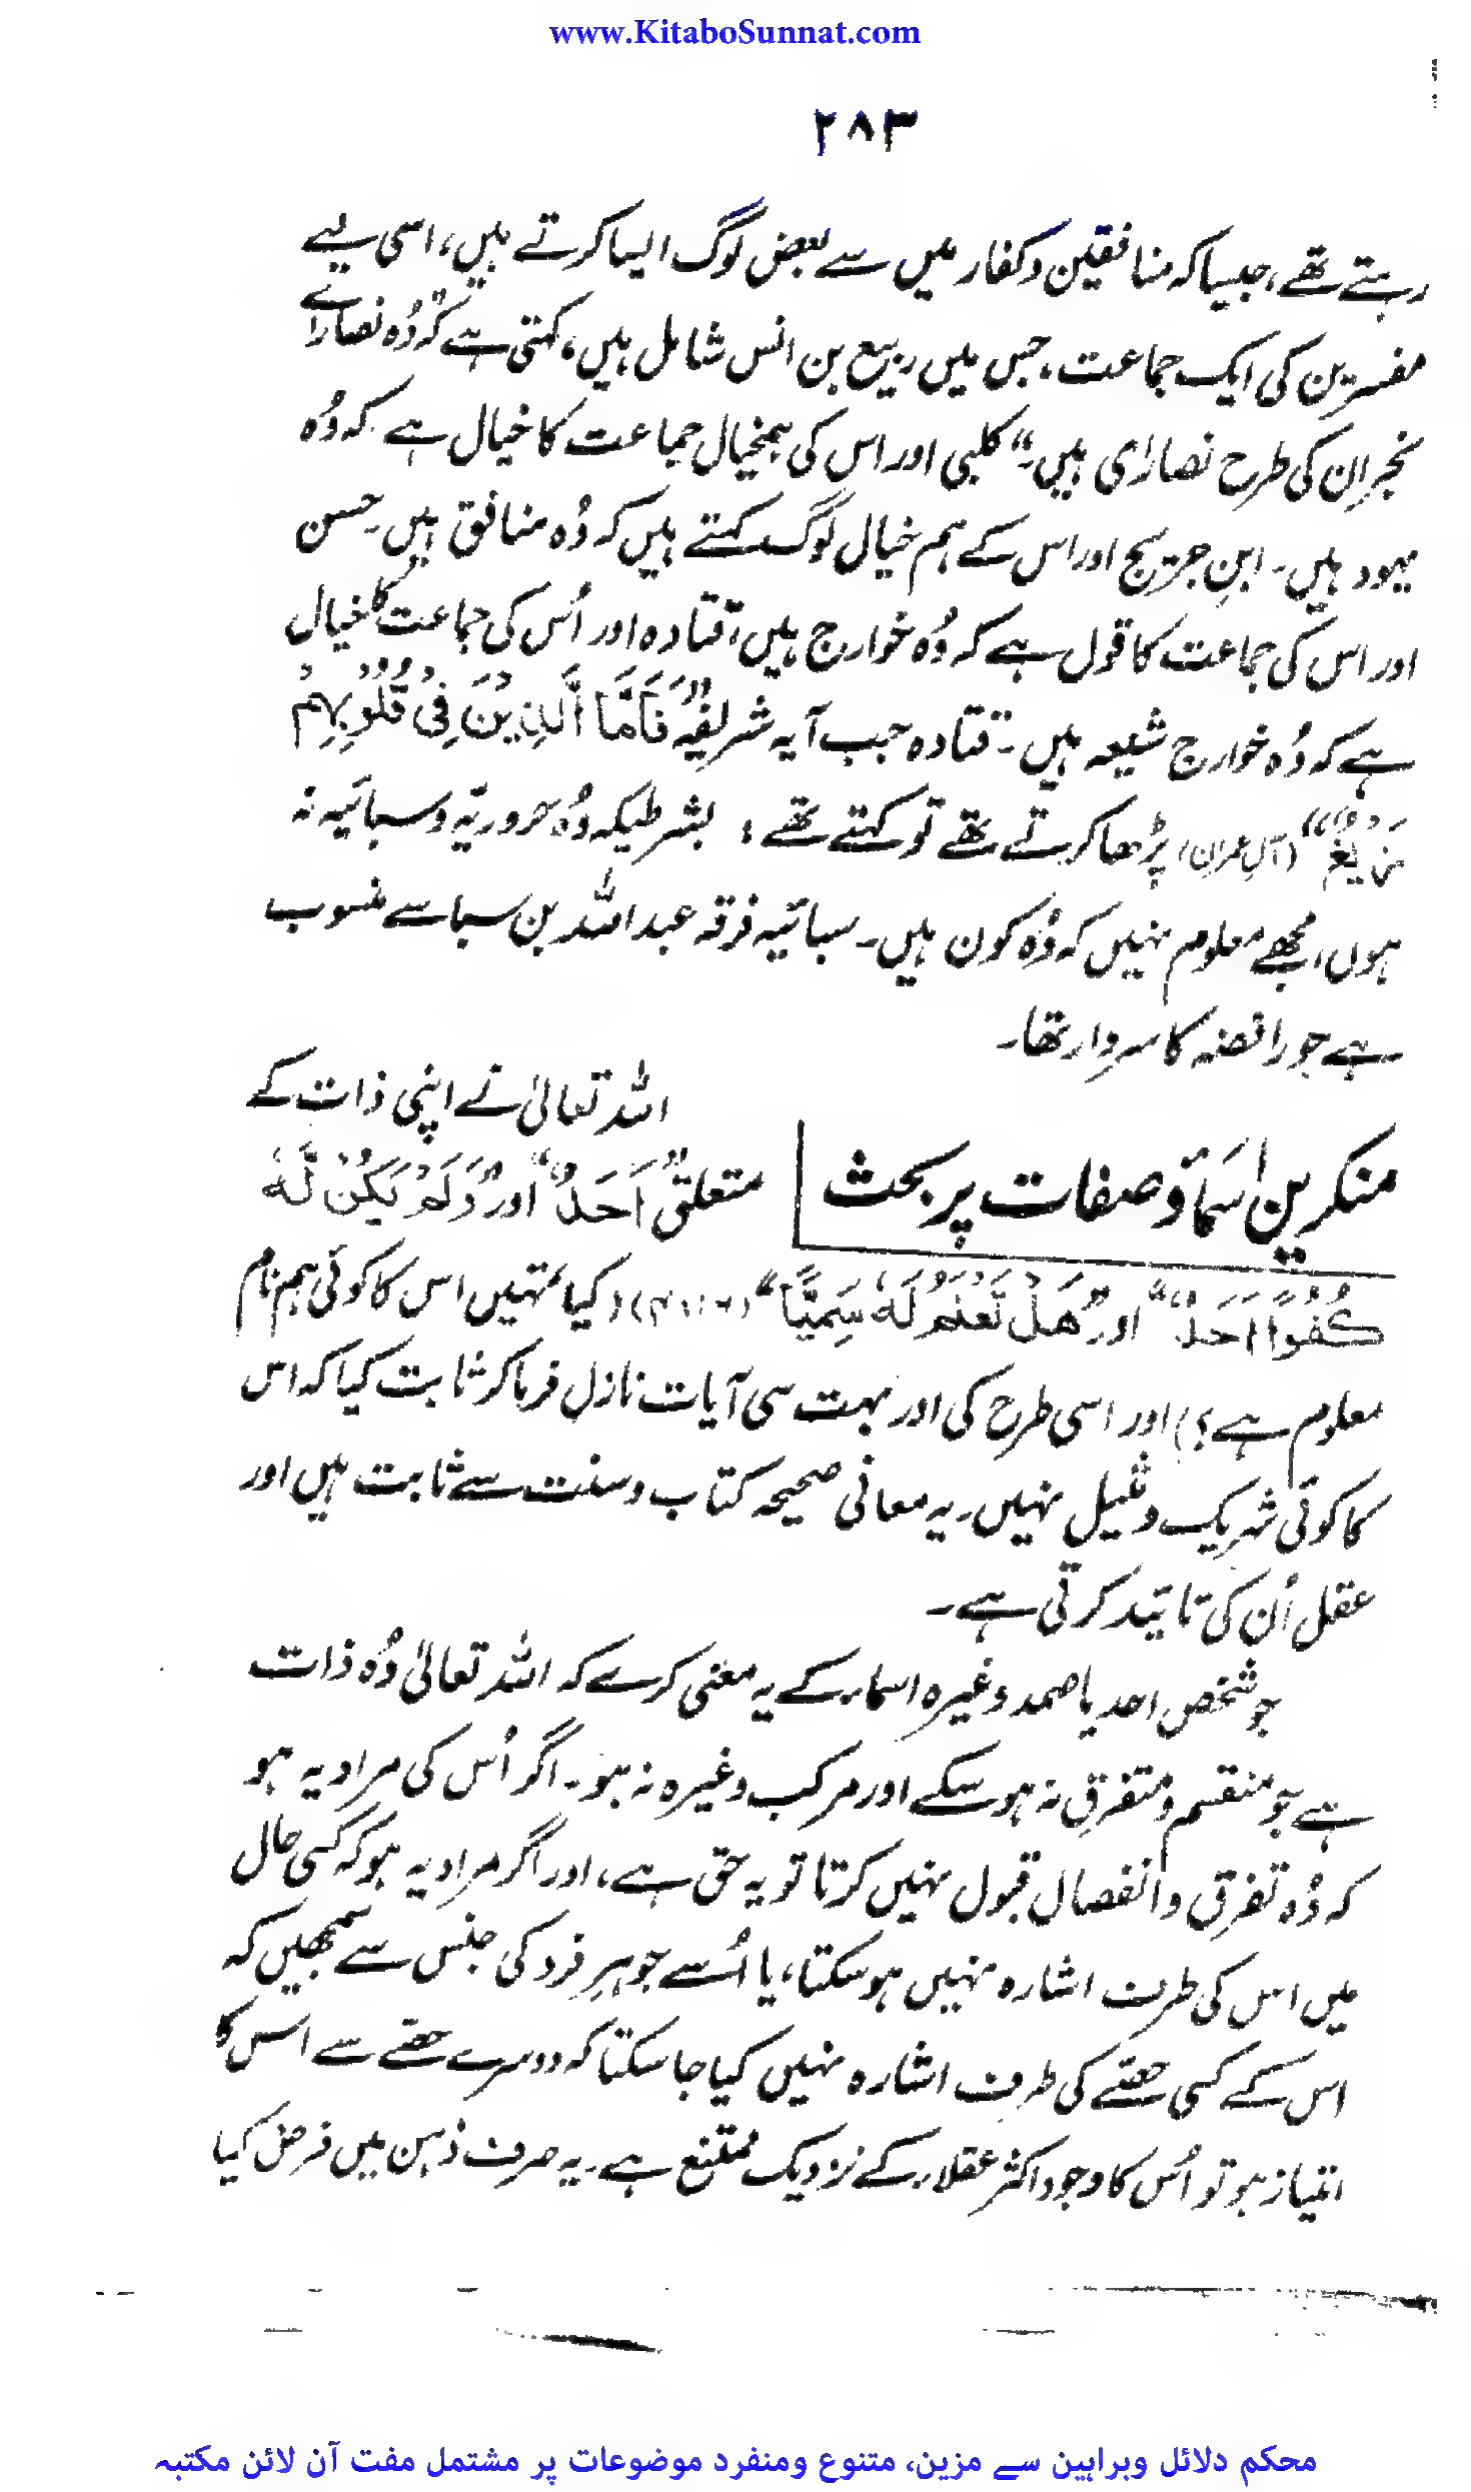 www.KitaboSunnat.com
۲۸۳
رہتے تھے، جیسا کہ منافقین و کفار میں سے بعض لوگ ایسا کرتے ہیں، اسی لیے
مفسرین کی ایک جماعت، جس میں ربیع بن انس شامل ہیں، کہتی ہے کہ "وُہ نصارائے
نجران کی طرح نصارٰی ہیں۔" کلبی اور اس کی ہمخیال جماعت کا خیال ہے کہ وُہ
یہود ہیں۔ ابنِ جریج اور اس کے ہم خیال لوگ کہتے ہیں کہ وُہ منافق ہیں۔ حسن
اور اس کی جماعت کا قول ہے کہ وُہ خوارج ہیں، قتادہ اور اُس کی جماعت کا خیال
ہے کہ وُہ خوارج شیعہ ہیں۔ قتادہ جب آیہ شریفہ "فَاَمَّا الَّذِیْنَ فِیْ قُلُوْبِہِمْ
زَیْغٌ" (آلِ عمران) پڑھا کرتے تھے تو کہتے تھے: بشرطیکہ وُہ حروریّہ و سبائیہ نہ
ہوں، مجھے معلوم نہیں کہ وُہ کون ہیں۔ سبائیہ فرقہ عبد اللہ بن سبا سے منسوب
ہے جو رافضہ کا سردار تھا۔
منکرینِ اسَماؤ صفات پر بحث
اللہ تعالیٰ نے اپنی ذات کے
متعلق "اَحَدٌ" اور "وَلَمْ یَکُنْ لَّہٗ
کُفُوًا اَحَدٌ" اور "ھَلْ تَعْلَمُ لَہٗ سَمِیًّا" (کیا تمہیں اس کا کوئی ہم نام
معلوم ہے؟) اور اسی طرح کی اور بہت سی آیات نازل فرما کر ثابت کیا کہ اس
کا کوئی شریک و مثیل نہیں۔ یہ معانی صحیحہ کتاب و سنت سے ثابت ہیں اور
عقل اُن کی تائید کرتی ہے۔
جو شخص احد یا صمد وغیرہ اسماء کے یہ معنی کرے کہ اللہ تعالیٰ وُہ ذات
ہے جو منقسم و متفرق نہ ہو سکے اور مرکب وغیرہ نہ ہو۔ اگر اُس کی مراد یہ ہو
کہ وُہ تفرق و انفصال قبول نہیں کرتا تو یہ حق ہے، اور اگر مراد یہ ہو کہ کسی حال
میں اس کی طرف اشارہ نہیں ہو سکتا، یا اُسے جوہرِ فرد کی جنس سے سمجھیں کہ
اس کے کسی حصّے کی طرف اشارہ نہیں کیا جا سکتا کہ دوسرے حصّے سے اس کا
امتیاز ہو تو اُس کا وجود اکثر عقلاء کے نزدیک ممتنع ہے۔ یہ صرف ذہن میں فرض کیا
محکم دلائل وبراہین سے مزین، متنوع ومنفرد موضوعات پر مشتمل مفت آن لائن مکتبہ